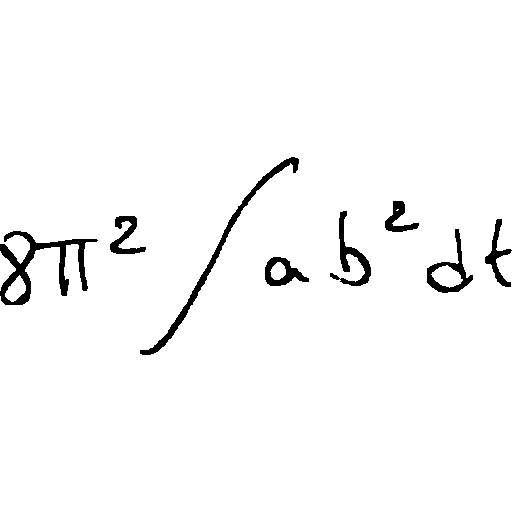 8π² ∫ ab² dt